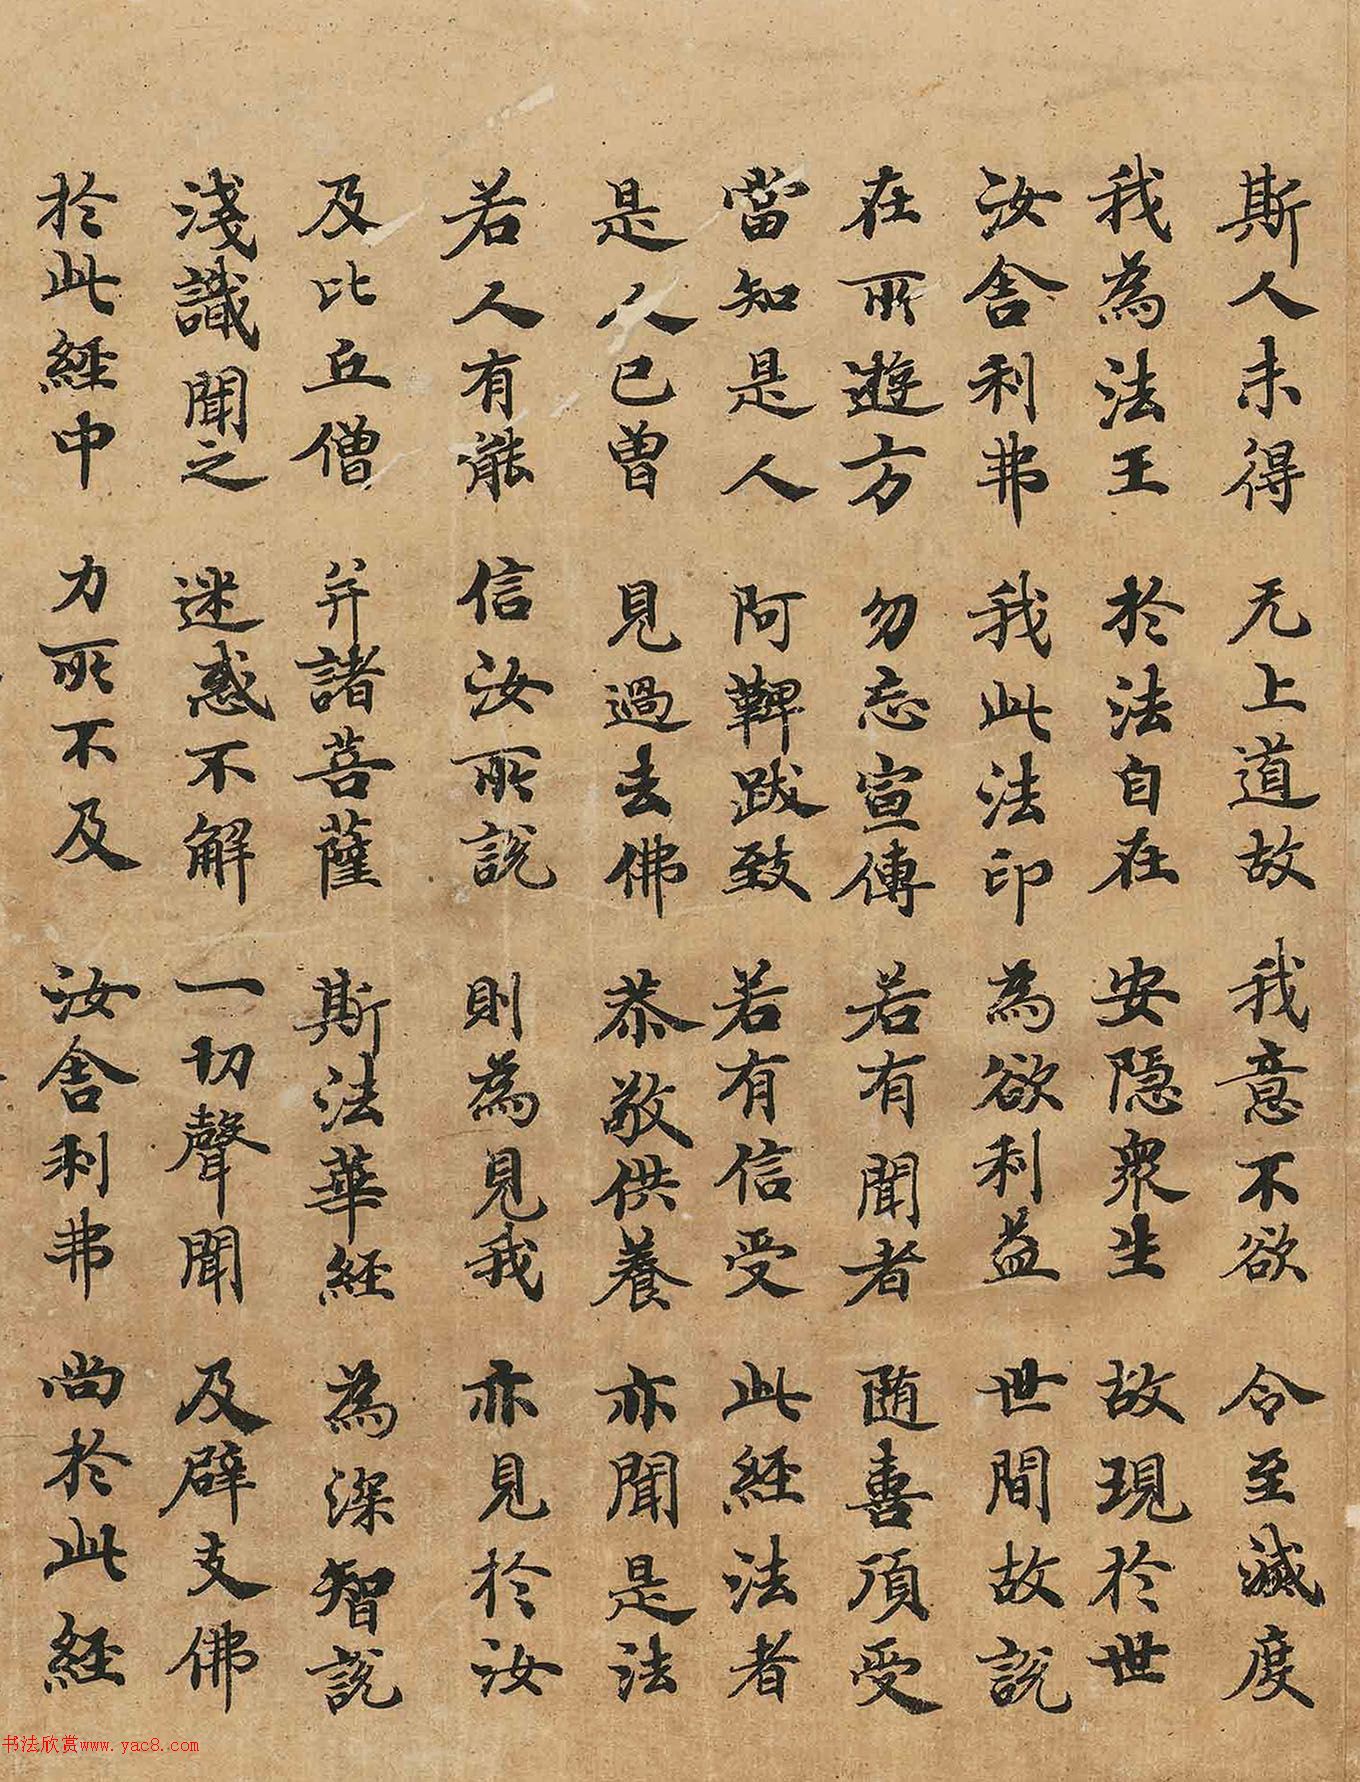 斯人未得 无上道故 我意不欲 令至滅度
我為法王 於法自在 安隱衆生 故現於世
汝舍利弗 我此法印 為欲利益 世間故說
在所遊方 勿忘宣傳 若有聞者 随喜頂受
當知是人 阿鞞跋致 若有信受 此經法者
是人已曾 見過去佛 恭敬供養 亦聞是法
若人有能 信汝所說 則為見我 亦見於汝
及比丘僧 并諸菩薩 斯法華經 為深智說
淺識聞之 迷惑不解 一切聲聞 及辟支佛
於此經中 力所不及 汝舍利弗 尚於此經
书法欣赏www.yac8.com